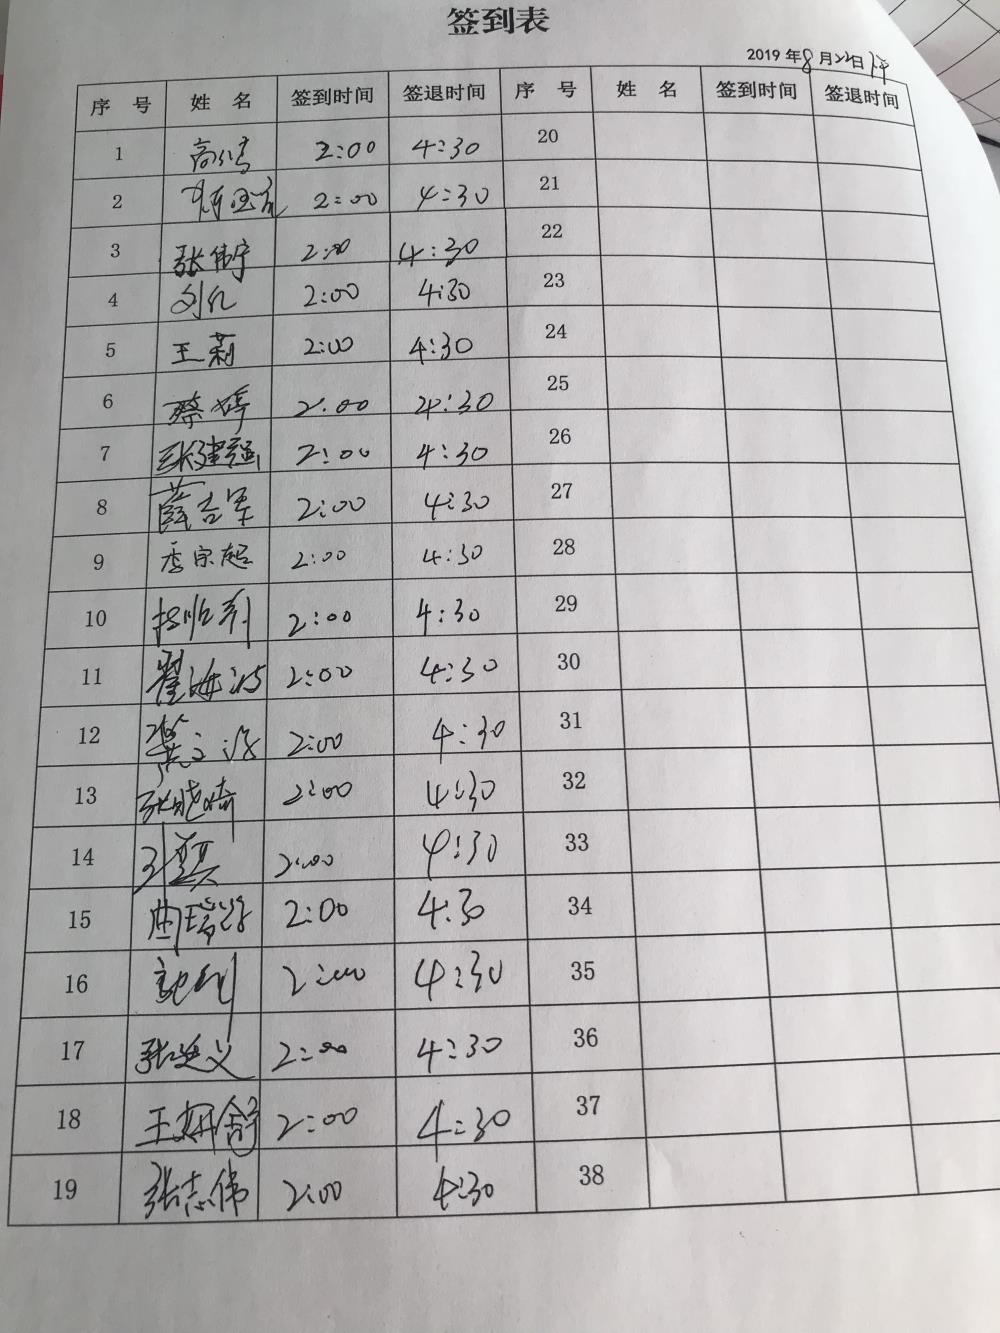 签到表
2019年8月21日
序 号 姓 名 签到时间 签退时间 序 号 姓 名 签到时间 签退时间
1 2:00 4:30 20
2 2:00 4:30 21
3 张伟宁 2:00 4:30 22
4 2:00 4:30 23
5 王莉 2:00 4:30 24
6 蔡婷 2:00 4:30 25
7 张建强 2:00 4:30 26
8 薛吉军 2:00 4:30 27
9 季宗超 2:00 4:30 28
10 2:00 4:30 29
11 2:00 4:30 30
12 2:00 4:30 31
13 张晓崎 2:00 4:30 32
14 2:00 4:30 33
15 2:00 4:30 34
16 2:00 4:30 35
17 2:00 4:30 36
18 王妍舒 2:00 4:30 37
19 张志伟 2:00 4:30 38